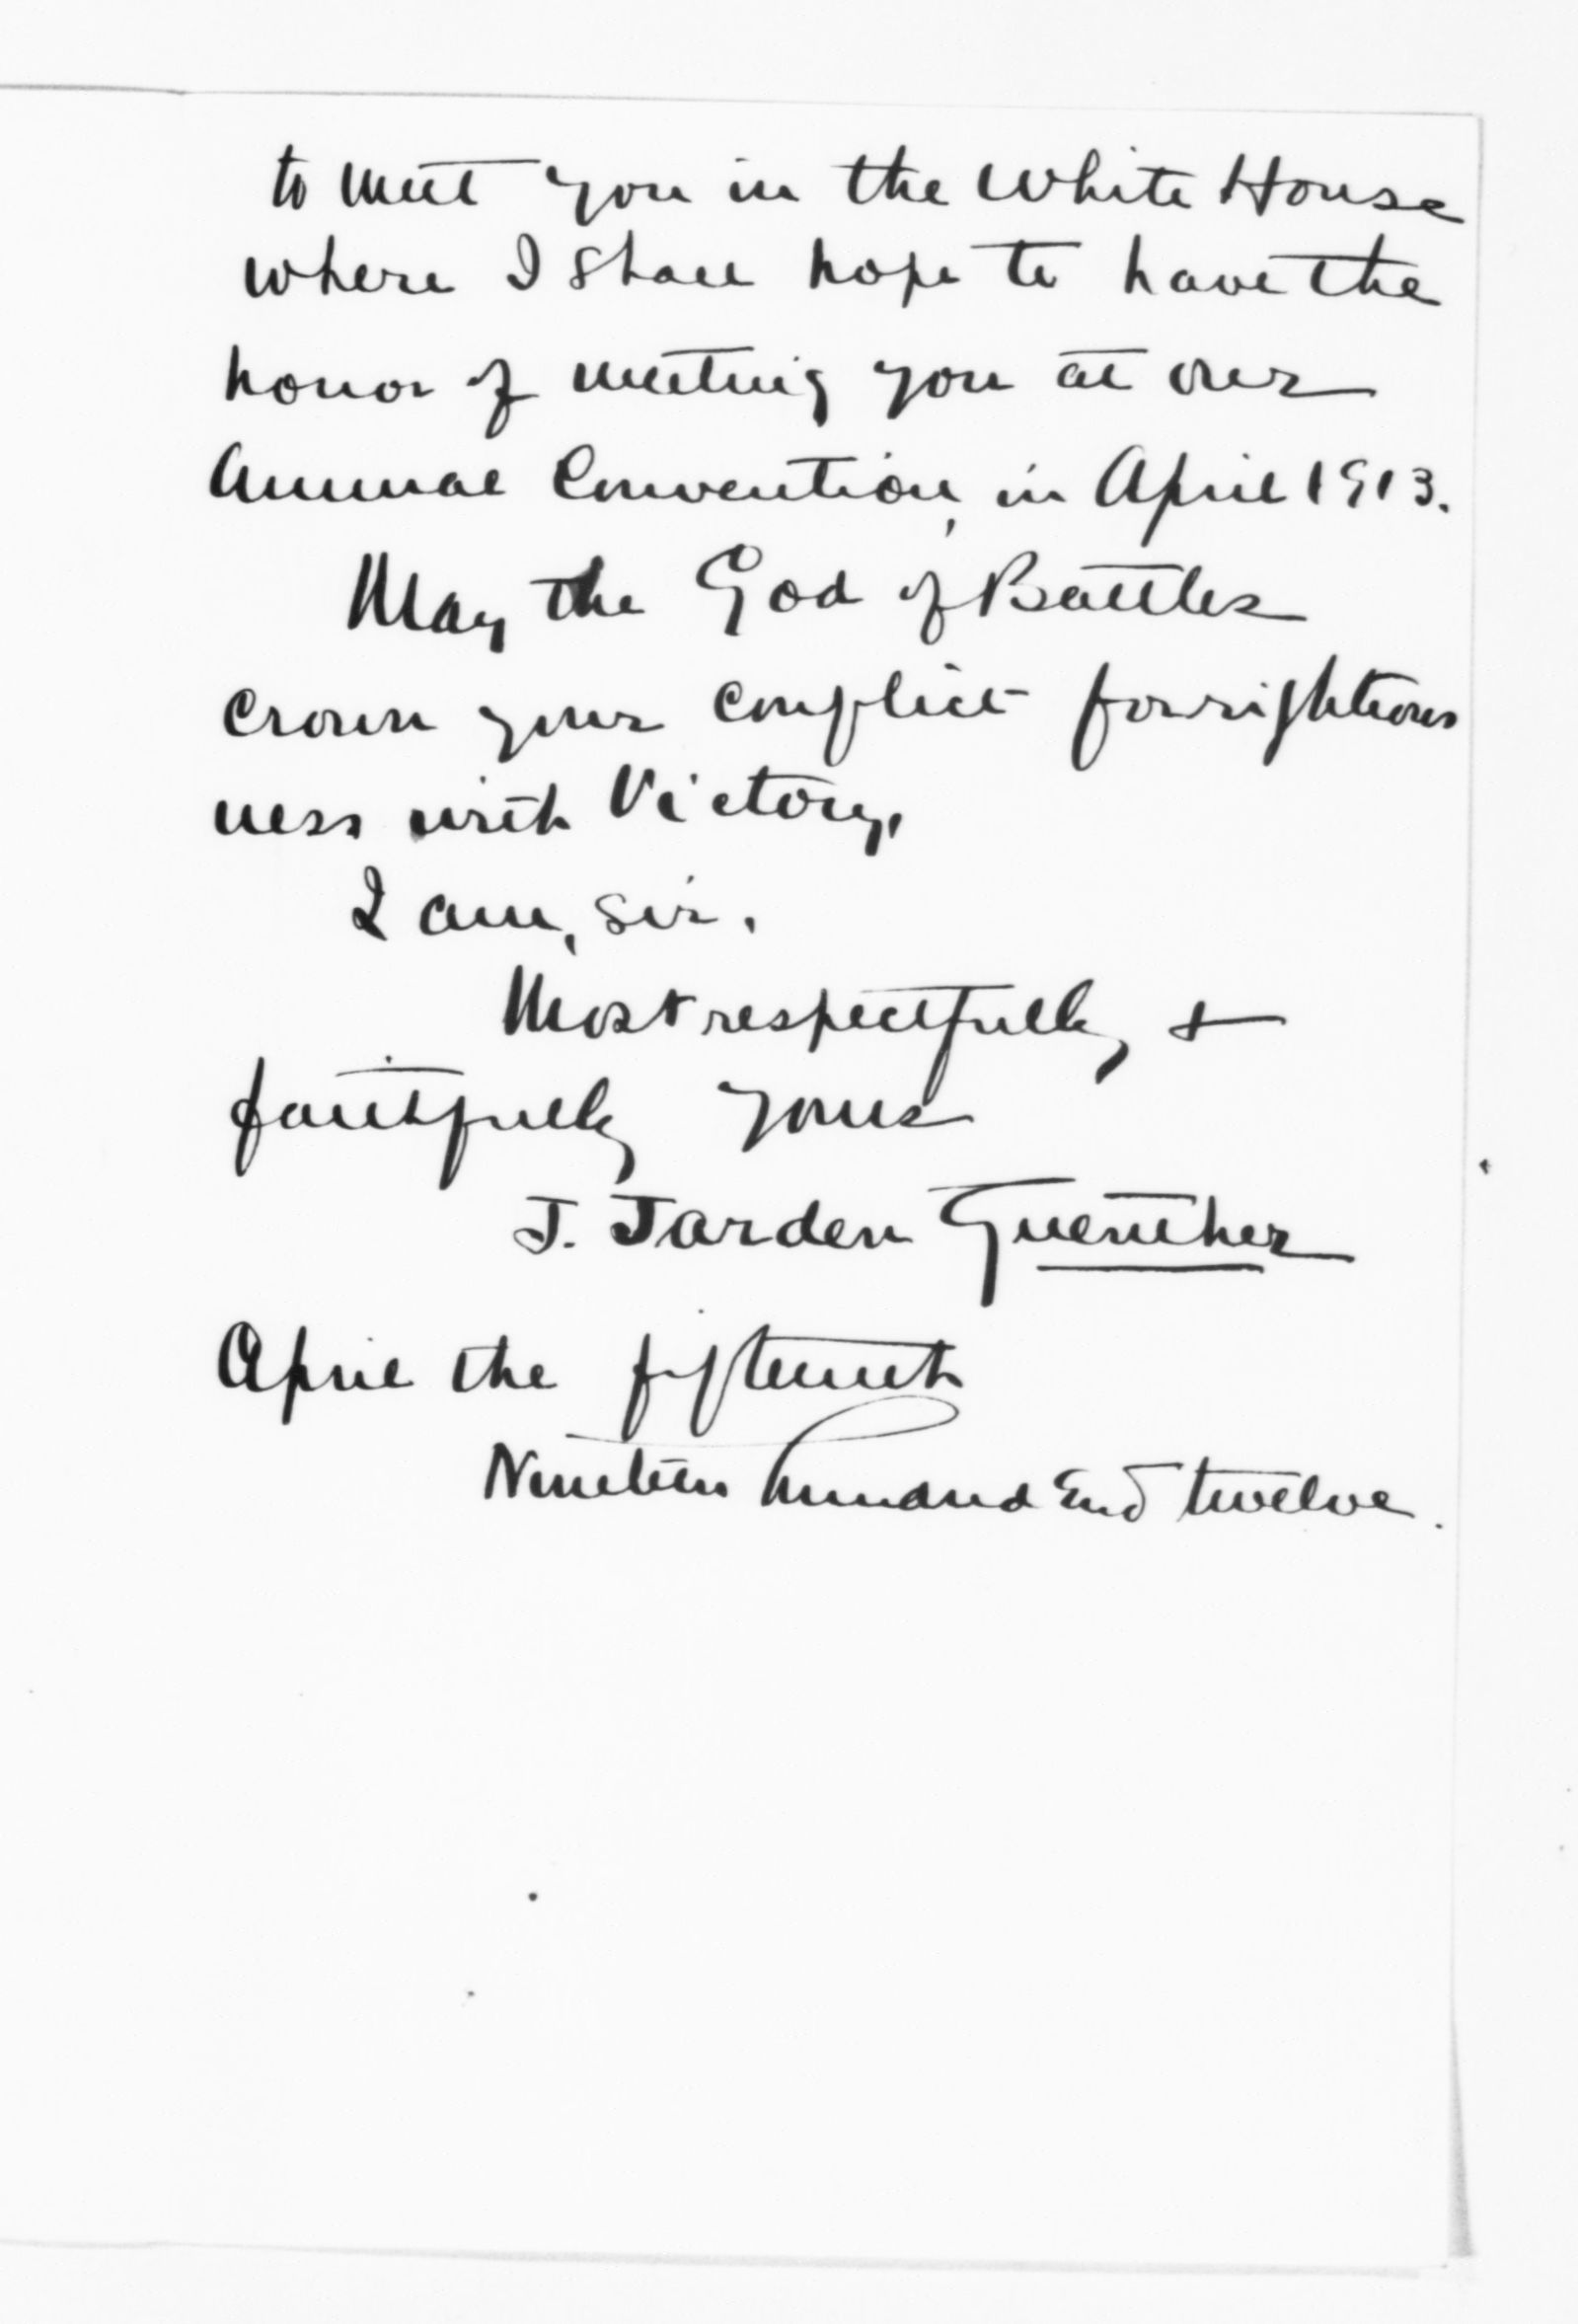 to meet you in the White House
where I shall hope to have the
honor of meeting you at our
Annual Convention, in April 1913.
May the God of Battles
crown your conflict for righteous
ness with Victory,
I am, sir,
Most respectfully &
faithfully yours
J. Jarden Guenther
April the fifteenth
Nineteen hundred and twelve.